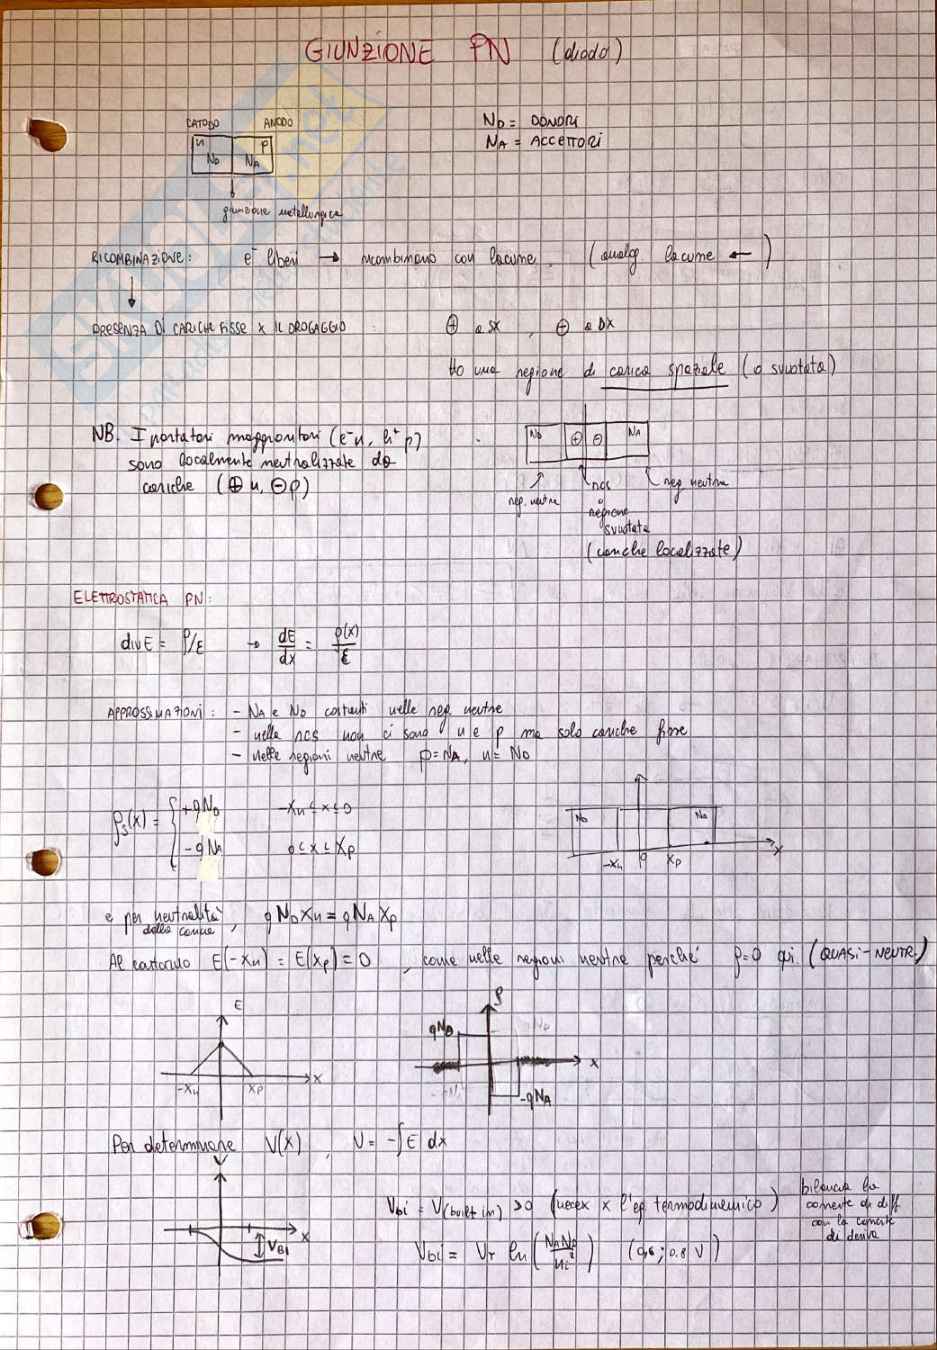 GIUNZIONE PN (diodo)
CATODO ANODO
n p
ND NA
giunzione metallurgica
ND = DONORI
NA = ACCETTORI
RICOMBINAZIONE: e⁻ liberi → ricombinano con lacune. (analog. lacune ←)
↓
PRESENZA DI CARICHE FISSE X IL DROGAGGIO: ⊕ a SX, ⊖ a DX
Ho una regione di carica spaziale (o svuotata)
NB. I portatori maggioritari (e⁻ n, h⁺ p)
sono localmente neutralizzate da
cariche (⊕ n, ⊖ p)
ND ⊕ ⊖ NA
reg. neutra rcs reg neutra
regione
svuotata
(cariche localizzate)
ELETTROSTATICA PN:
div E = ρ/ε → dE/dx = ρ(x)/ε
APPROSSIMAZIONI: - NA e ND costanti nelle reg. neutre
- nella rcs non ci sono n e p ma solo cariche fisse
- nelle regioni neutre p=NA, n=ND
ρs(x) = { +qND -xn ≤ x ≤ 0
- qNA 0 ≤ x ≤ xp
ND NA
-xn 0 xp x
e per neutralità della carica, qND xn = qNA xp
Al contorno E(-xn) = E(xp) = 0, come nelle regioni neutre perché ρ=0 qui (QUASI-NEUTR.)
E
-xn xp x
ρ
qND
x
-qNA
Per determinare V(x), V = -∫E dx
V
x
VBi
Vbi = V(built in) > 0 (necex x l'eq. termodinamico)
bilancia la
corrente di diff
con la corrente
di deriva
Vbi = VT ln(NA ND/ni²) (0,6; 0.8 V)